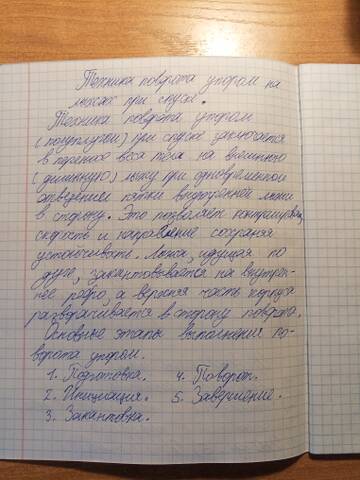 Техника поворота упором на
лыжах при спуске.
Техника поворота упором
(полуплугом) при спуске заключается
в переносе веса тела на внешнюю
(дальнюю) лыжу при одновременном
отведении пятки внутренней лыжи
в сторону. Это позволяет контролировать
скорость и направление сохраняя
устойчивость. Лыжа, идущая по
дуге, закантовывается на внутрен-
нее ребро, а верхняя часть корпуса
разворачивается в сторону поворота.
Основные этапы выполнения по-
ворота упором.
1. Подготовка. 4. Поворот.
2. Инициация. 5. Завершение.
3. Закантовка.